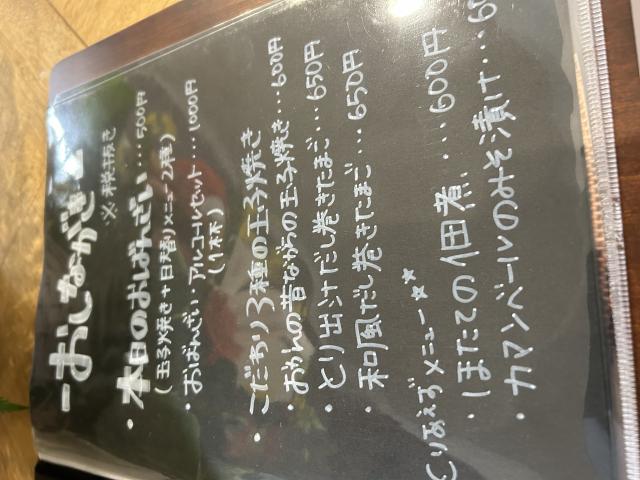 -おしながき-
※税抜き
・本日のおばんざい...500円
(玉子焼き+日替りメニュー2種)
・おばんざい アルコールセット...1000円
(1杯)
・こだわり3種の玉子焼き
・おかんの昔ながらの玉子焼き...600円
・とり出汁だし巻きたまご...650円
・和風だし巻きたまご...650円
とりあえずメニュー☆☆
・ほたての佃煮...600円
・カマンベールのみそ漬け...